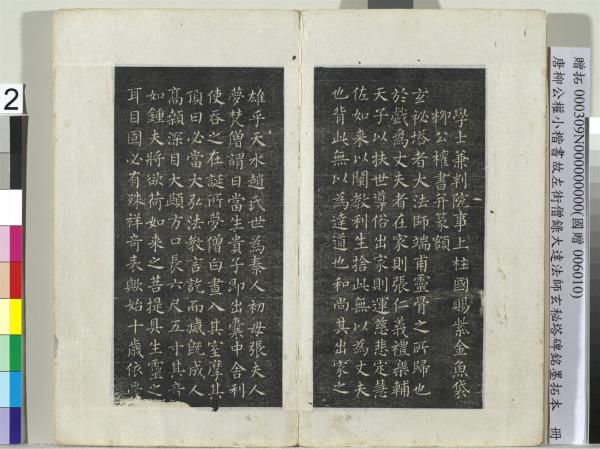 學士兼判院事上柱國賜紫金魚袋
柳公權書并篆額
玄祕塔者大法師端甫靈骨之所歸也
於戲為丈夫者在家則張仁義禮樂輔
天子以扶世導俗出家則運慈悲定慧
佐如來以闡教利生捨此無以為丈夫
也背此無以為達道也和尚其出家之
雄乎天水趙氏世為秦人初母張夫人
夢梵僧謂曰當生貴子即出囊中舍利
使吞之及誕所夢僧白晝入其室摩其
頂曰必當大弘法教言訖而滅既成人
高顙深目大頤方口長六尺五寸其音
如鍾夫將欲荷如來之菩提具生靈之
耳目固必有殊祥奇表歟始十歲依崇
贈拓 000309N000000000(國贈 006010)
唐柳公權小楷書故左街僧錄大達法師玄秘塔碑銘墨拓本 冊
2